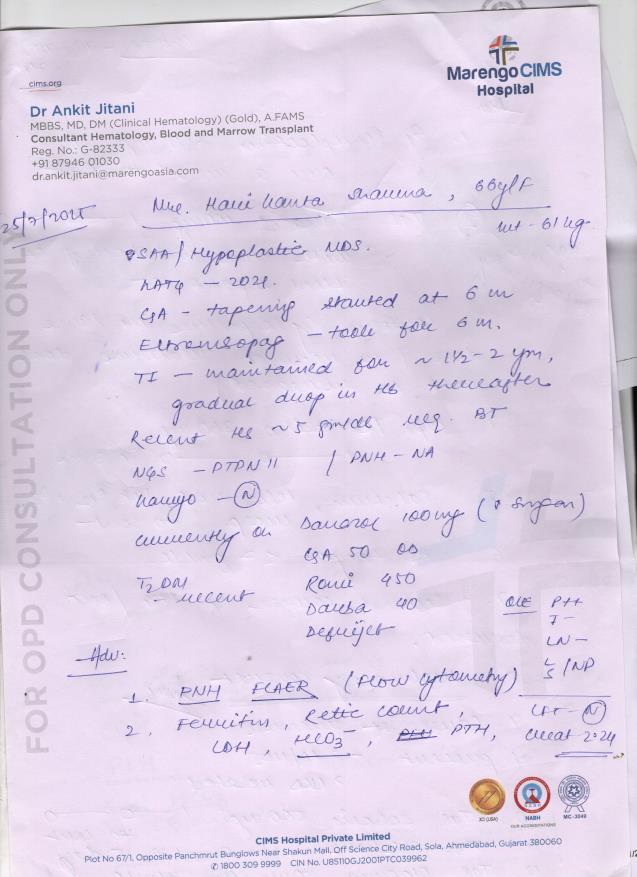 cims.org
Marengo CIMS
Hospital
Dr Ankit Jitani
MBBS, MD, DM (Clinical Hematology) (Gold), A.FAMS
Consultant Hematology, Blood and Marrow Transplant
Reg. No.: G-82333
+91 87946 01030
dr.ankit.jitani@marengoasia.com
25/7/2025
66y/F
wt - 61 kg
SAA / Hypoplastic MDS.
hATG - 2021.
CsA - tapering started at 6 m
Eltrombopag - took for 6 m.
TI - maintained for ~ 1½-2 yrs,
gradual drop in Hb thereafter
Recent Hb ~5 gm/dl req. BT
NGS - PTPN 11 / PNH - NA
Karyo - N
currently on Danazol 100mg ( sugar)
CsA 50 OD
T2DM - recent
450
40
O/E P++
I -
LN -
L/S / NP
Adv:
1. PNH FLAER (Flow cytometry)
2. Ferritin, Retic count,
LDH, HCO3-, PTH,
LFT - N
creat 2.24
FOR OPD CONSULTATION ONLY
JCI (USA)
NABH
MC-3049
OUR ACCREDITATIONS
CIMS Hospital Private Limited
Plot No 67/1, Opposite Panchmrut Bunglows Near Shakun Mall, Off Science City Road, Sola, Ahmedabad, Gujarat 380060
1800 309 9999 CIN No. U85110GJ2001PTC039962